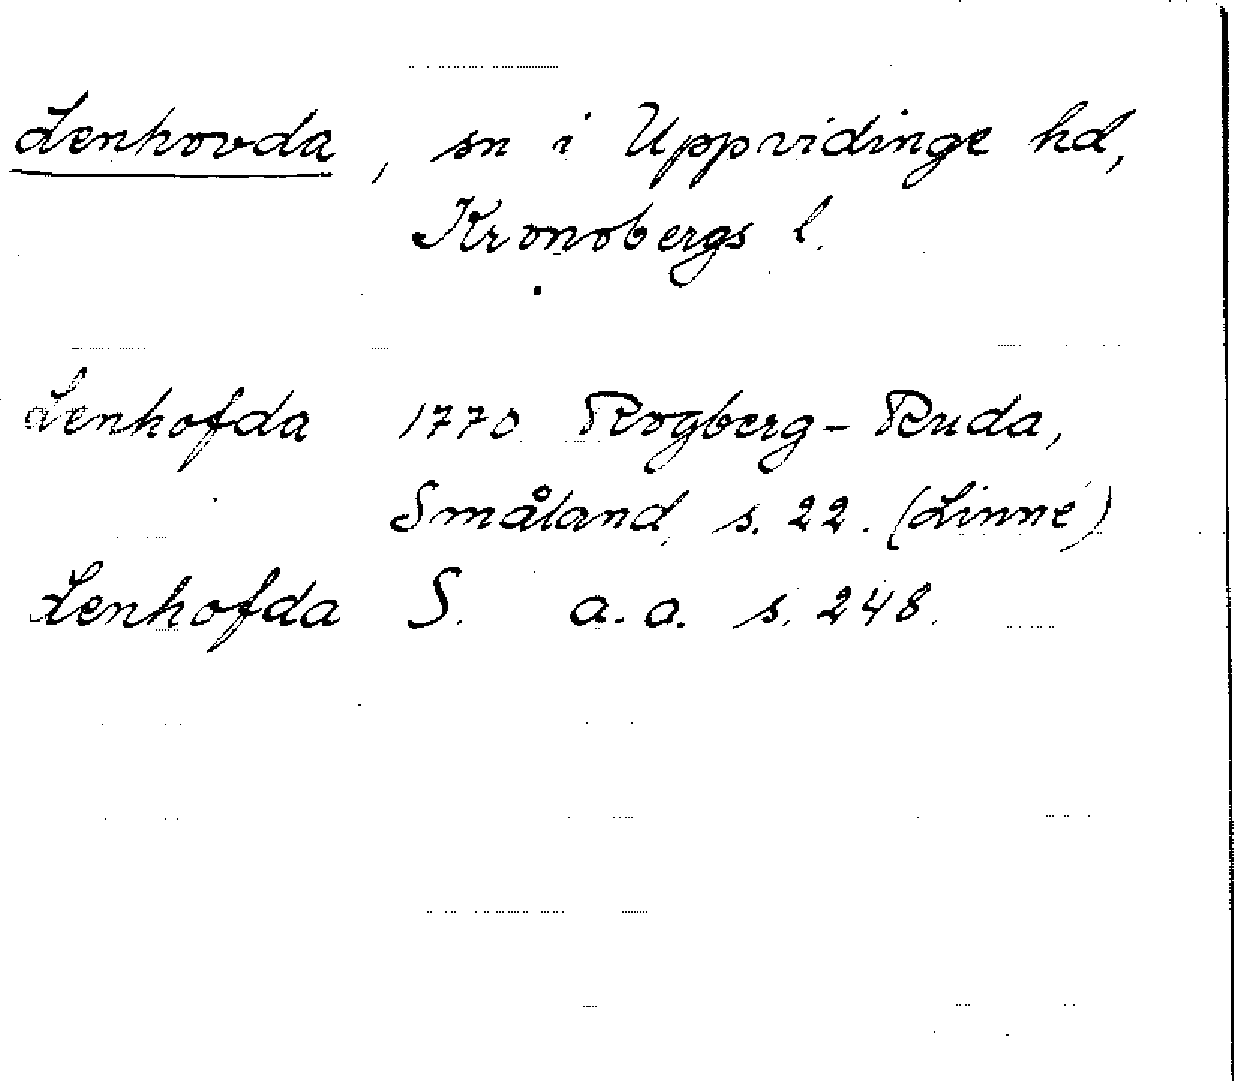 Lenhovda, sn i Uppvidinge hd,
Kronobergs l.
Lenhofda 1770 Rogberg-Ruda,
Småland s. 22. (Linné)
Lenhofda S. a.a. s. 248.